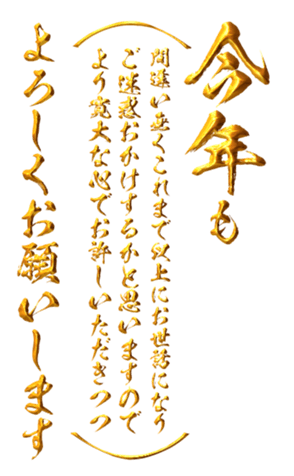 今年も
（間違い無くこれまで以上にお世話になり
ご迷惑おかけするかと思いますので
より寛大な心でお許しいただきつつ）
よろしくお願いします